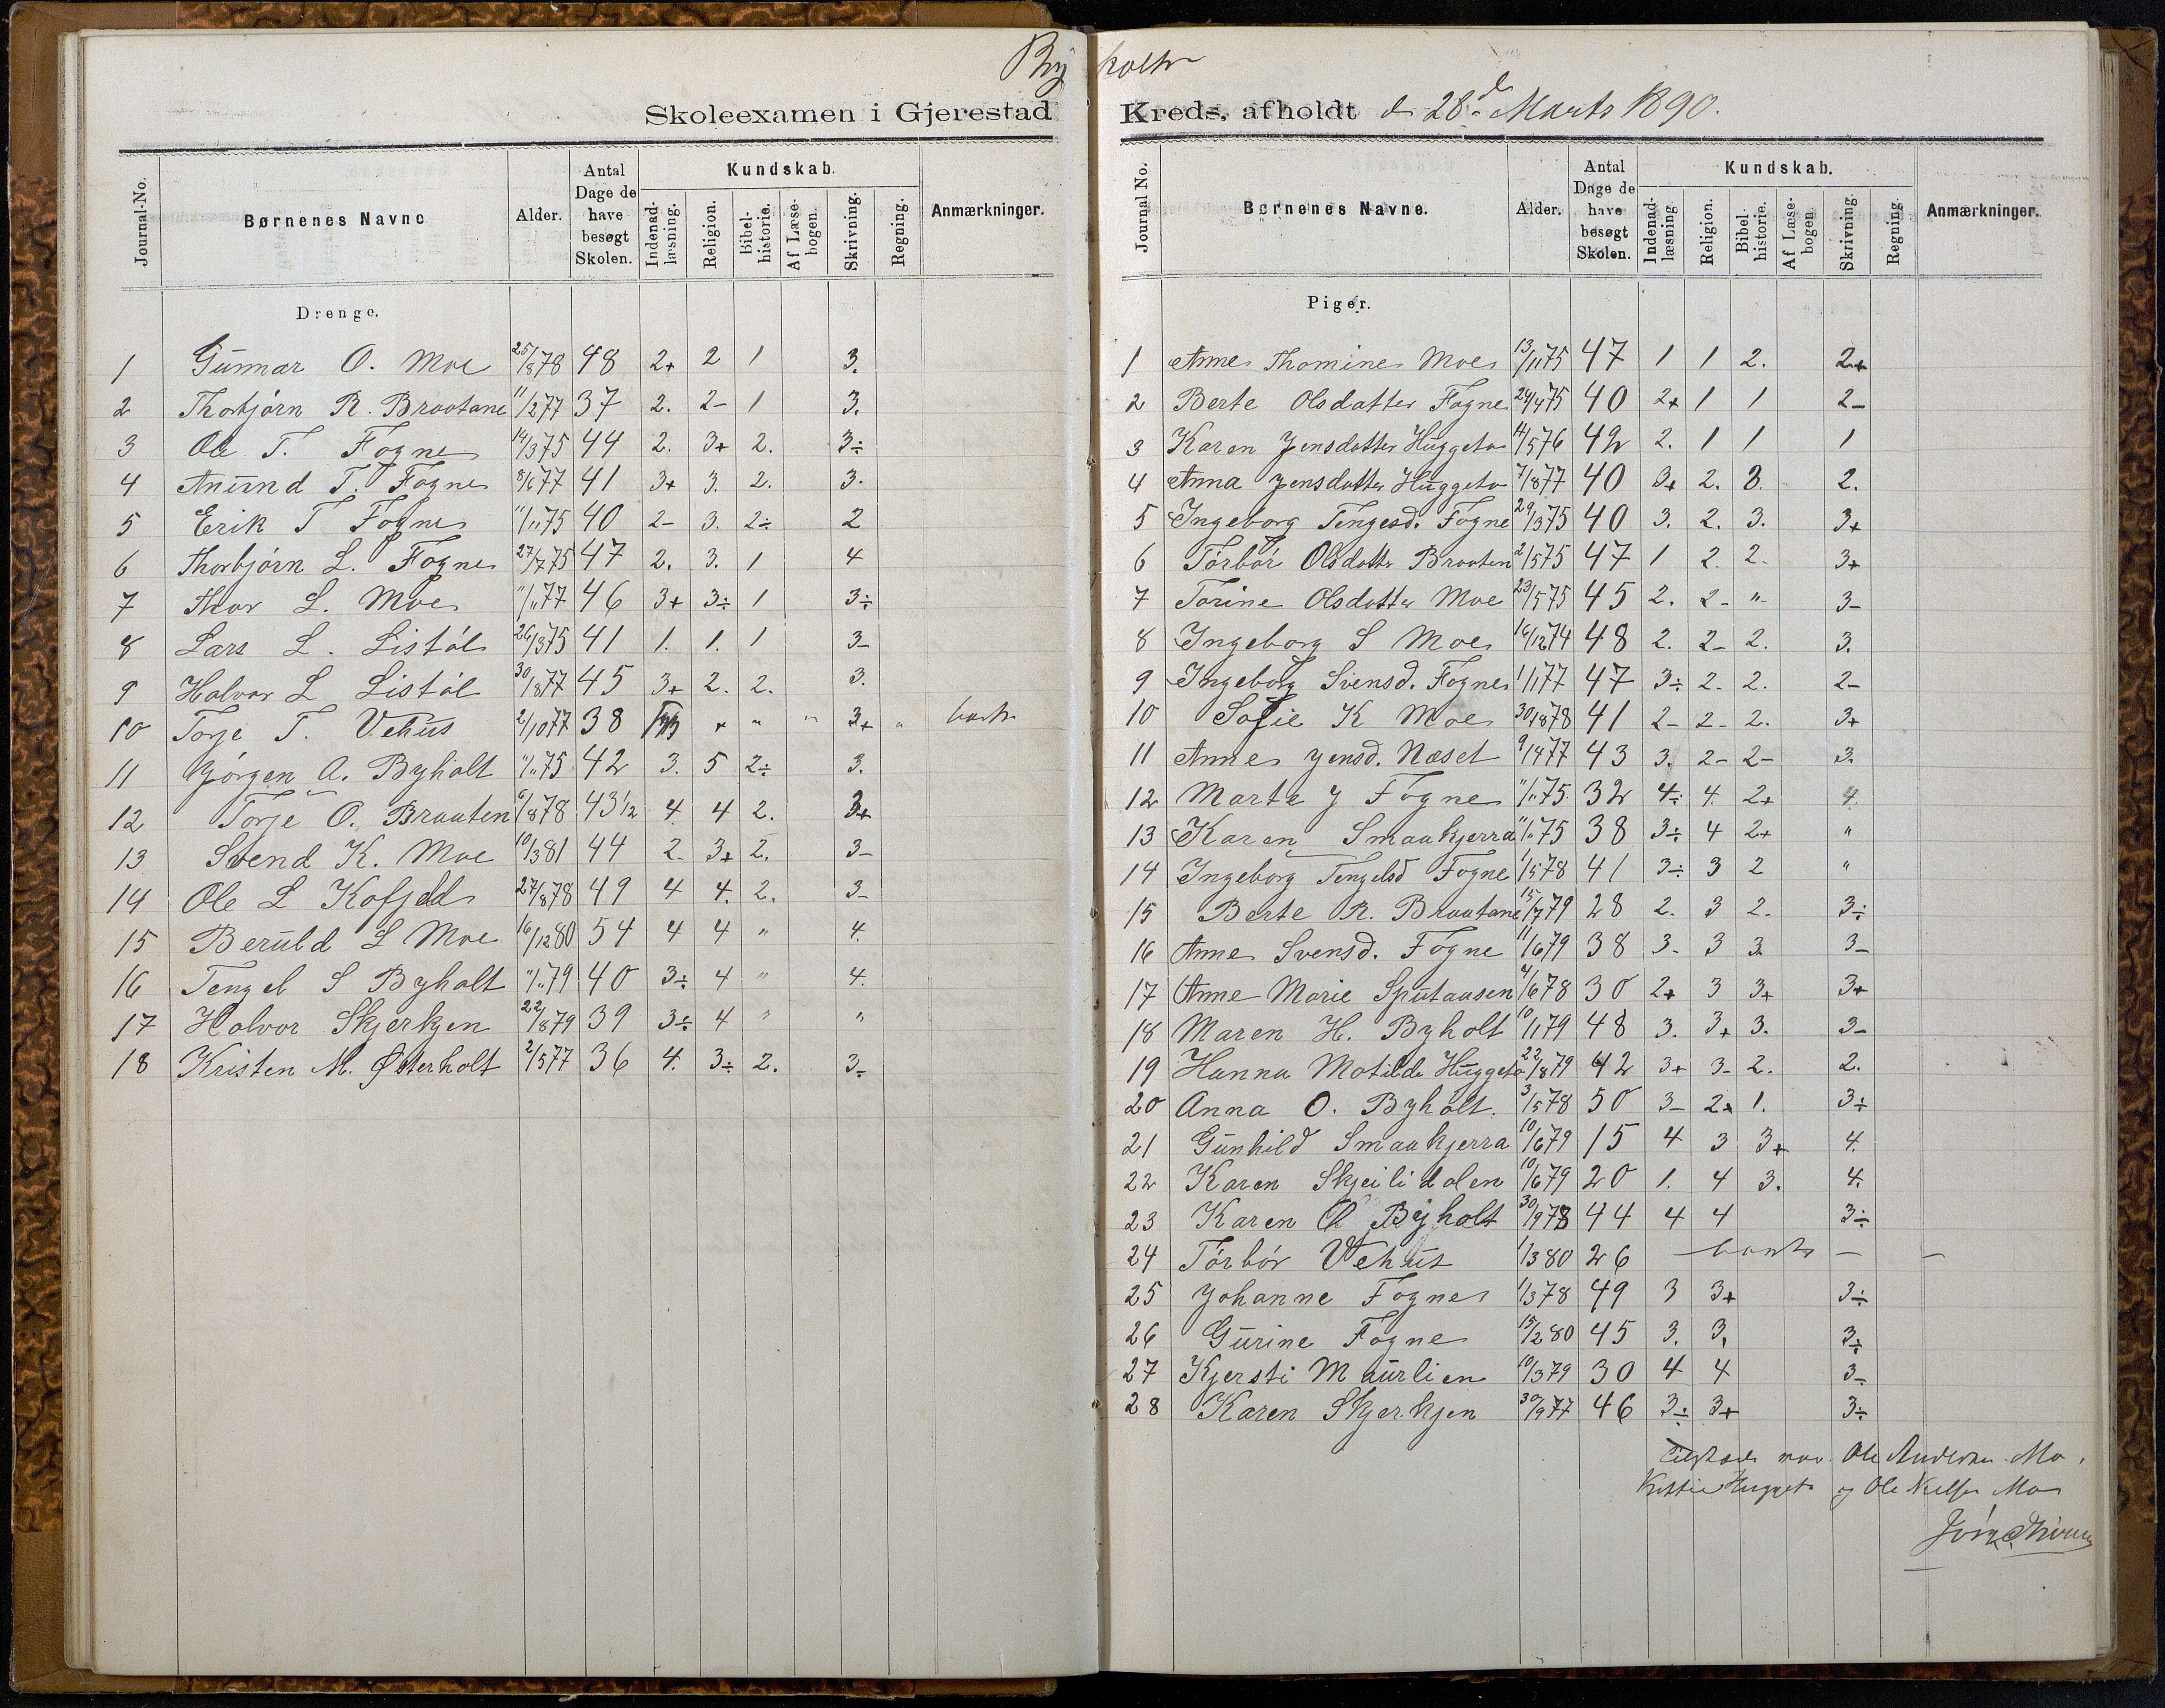 Byholt
Skoleexamen i Gjerestad Kreds, afholdt d 28de Marts 1890.
Journal-No. Børnenes Navne Alder. Antal Dage de have besøgt Skolen. Kundskab. Indenad-læsning. Religion. Bibel-historie. Af Læse-bogen. Skrivning. Regning. Anmærkninger.
Drenge.
1 Gunnar O. Moe 25/878 48 2+ 2 1 3.
2 Thorbjørn R. Braatane 11/277 37 2. 2- 1 3.
3 Ole T. Fogne 14/375 44 2. 3+ 2. 3÷
4 Anund T. Fogne 8/677 41 3+ 3. 2. 3.
5 Erik T Fogne "/1175 40 2- 3. 2÷ 2
6 Thorbjørn L. Fogne 27/775 47 2. 3. 1 4
7 Thor L. Moe "/"77 46 3+ 3÷ 1 3÷
8 Lars L. Listøl 26/375 41 1. 1. 1 3-
9 Halvor L Listøl 30/877 45 3+ 2. 2. 3.
10 Torje T. Vehus 2/1077 38 " " 3+ " borte
11 Jørgen A. Byholt "/"75 42 3. 5 2÷ 3.
12 Torje O. Braaten 6/878 43 1/2 4. 4 2. 3+
13 Svend K. Moe 10/381 44 2- 3+ 2. 3-
14 Ole L Kofjeld 27/878 49 4 4. 2. 3-
15 Beruld L Moe 16/1280 54 4 4 " 4.
16 Tengel S Byholt "/"79 40 3÷ 4 " 4.
17 Halvor Skjerkjen 22/879 39 3÷ 4 " "
18 Kristen M. Østerholt 2/577 36 4. 3÷ 2. 3-
Journal No. Børnenes Navne. Alder. Antal Dage de have besøgt Skolen. Kundskab. Indenad-læsning Religion. Bibel-historie. Af Læse-bogen. Skrivning. Regning. Anmærkninger.
Piger.
1 Anne Thomine Moe 13/1175 47 1 1 2. 2+
2 Berte Olsdatter Fogne 24/475 40 2+ 1 1 2-
3 Karen Jensdatter Huggeto 14/576 42 2. 1 1 1
4 Anna Jensdatter Huggeto 7/877 40 3+ 2. 3. 2.
5 Ingeborg Tengesd. Fogne 29/375 40 3. 2. 3. 3+
6 Tørbør Olsdatter Braaten 2/575 47 1 2. 2- 3+
7 Torine Olsdatter Moe 23/575 45 2. 2- " 3-
8 Ingeborg S Moe 16/1274 48 2. 2- 2. 3.
9 Ingeborg Svensd. Fogne 1/177 47 3÷ 2- 2. 2-
10 Sofie K Moe 30/878 41 2- 2- 2. 3+
11 Anne Jensd. Næset 9/477 43 3. 2- 2- 3.
12 Marte J Fogne "/"75 32 4÷ 4. 2+ 4.
13 Karen Smaakjerra "/"75 38 3÷ 4 2+ "
14 Ingeborg Tengelsd Fogne 1/578 41 3÷ 3 2 "
15 Berte R. Braatane 15/779 28 2. 3 2. 3÷
16 Anne Svensd. Fogne 11/679 38 3- 3 3. 3-
17 Anne Marie Sputaasen 4/678 30 2+ 3 3+ 3+
18 Maren H. Byholt 10/179 48 3. 3+ 3. 3-
19 Hanna Motilde Huggeto 22/879 42 3+ 3- 2. 2.
20 Anna O. Byholt. 3/578 50 3- 2+ 1. 3÷
21 Gunhild Smaakjerra 10/679 15 4 3 3+ 4.
22 Karen Skjeilidalen 10/679 20 1. 4 3. 4.
23 Karen O Byholt 30/978 44 4 4 3÷
24 Tørbør Vehus 1/380 26 borte — —
25 Johanne Fogne 1/378 49 3 3+ 3÷
26 Gurine Fogne 15/280 45 3. 3. 3÷
27 Kjersti Maurlien 10/379 30 4 4 3-
28 Karen Skjerkjen 30/977 46 3÷ 3+ 3÷
Tilstede var Ole Andersen Mo,
Huggeto og Ole Nielsen Mo